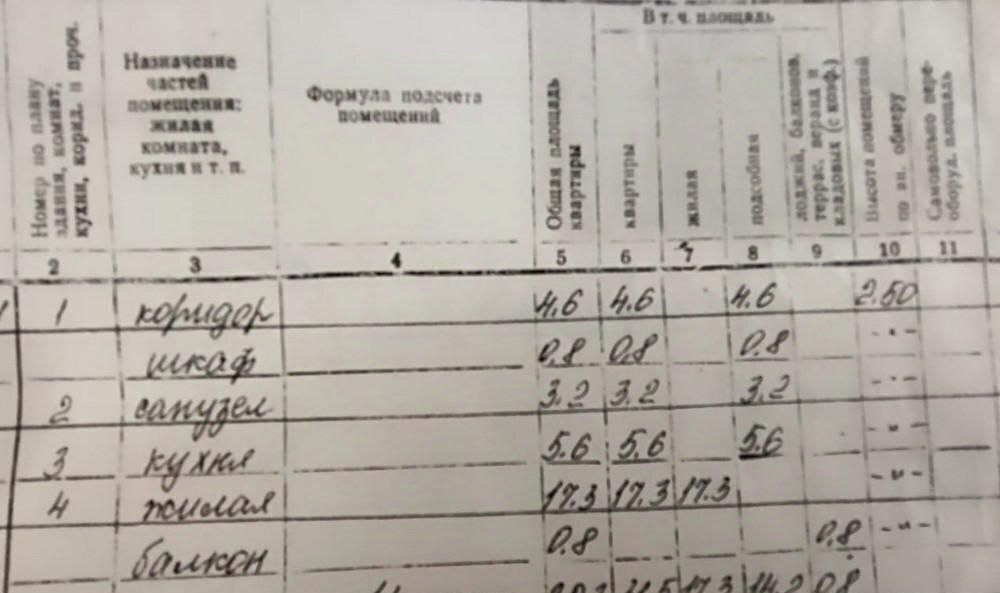 В т. ч. площадь
Номер по плану
здания, комнат,
кухни, корид. и проч.
Назначение
частей
помещения:
жилая
комната,
кухня и т. п.
Формула подсчета
помещений
Общая площадь
квартиры
квартиры
жилая
подсобная
лоджий, балконов,
террас, веранд и
кладовых (с коэф.)
Высота помещений
по вн. обмеру
Самовольно пере-
оборуд. площадь
2 3 4 5 6 7 8 9 10 11
1 коридор 4.6 4.6 4.6 2.50
шкаф 0,8 0,8 0,8 -"-
2 санузел 3.2 3.2 3.2 -"-
3 кухня 5.6 5.6 5.6 -"-
4 жилая 17.3 17.3 17.3 -"-
балкон 0.8 0.8 -"-
17.3 14.2 0.8